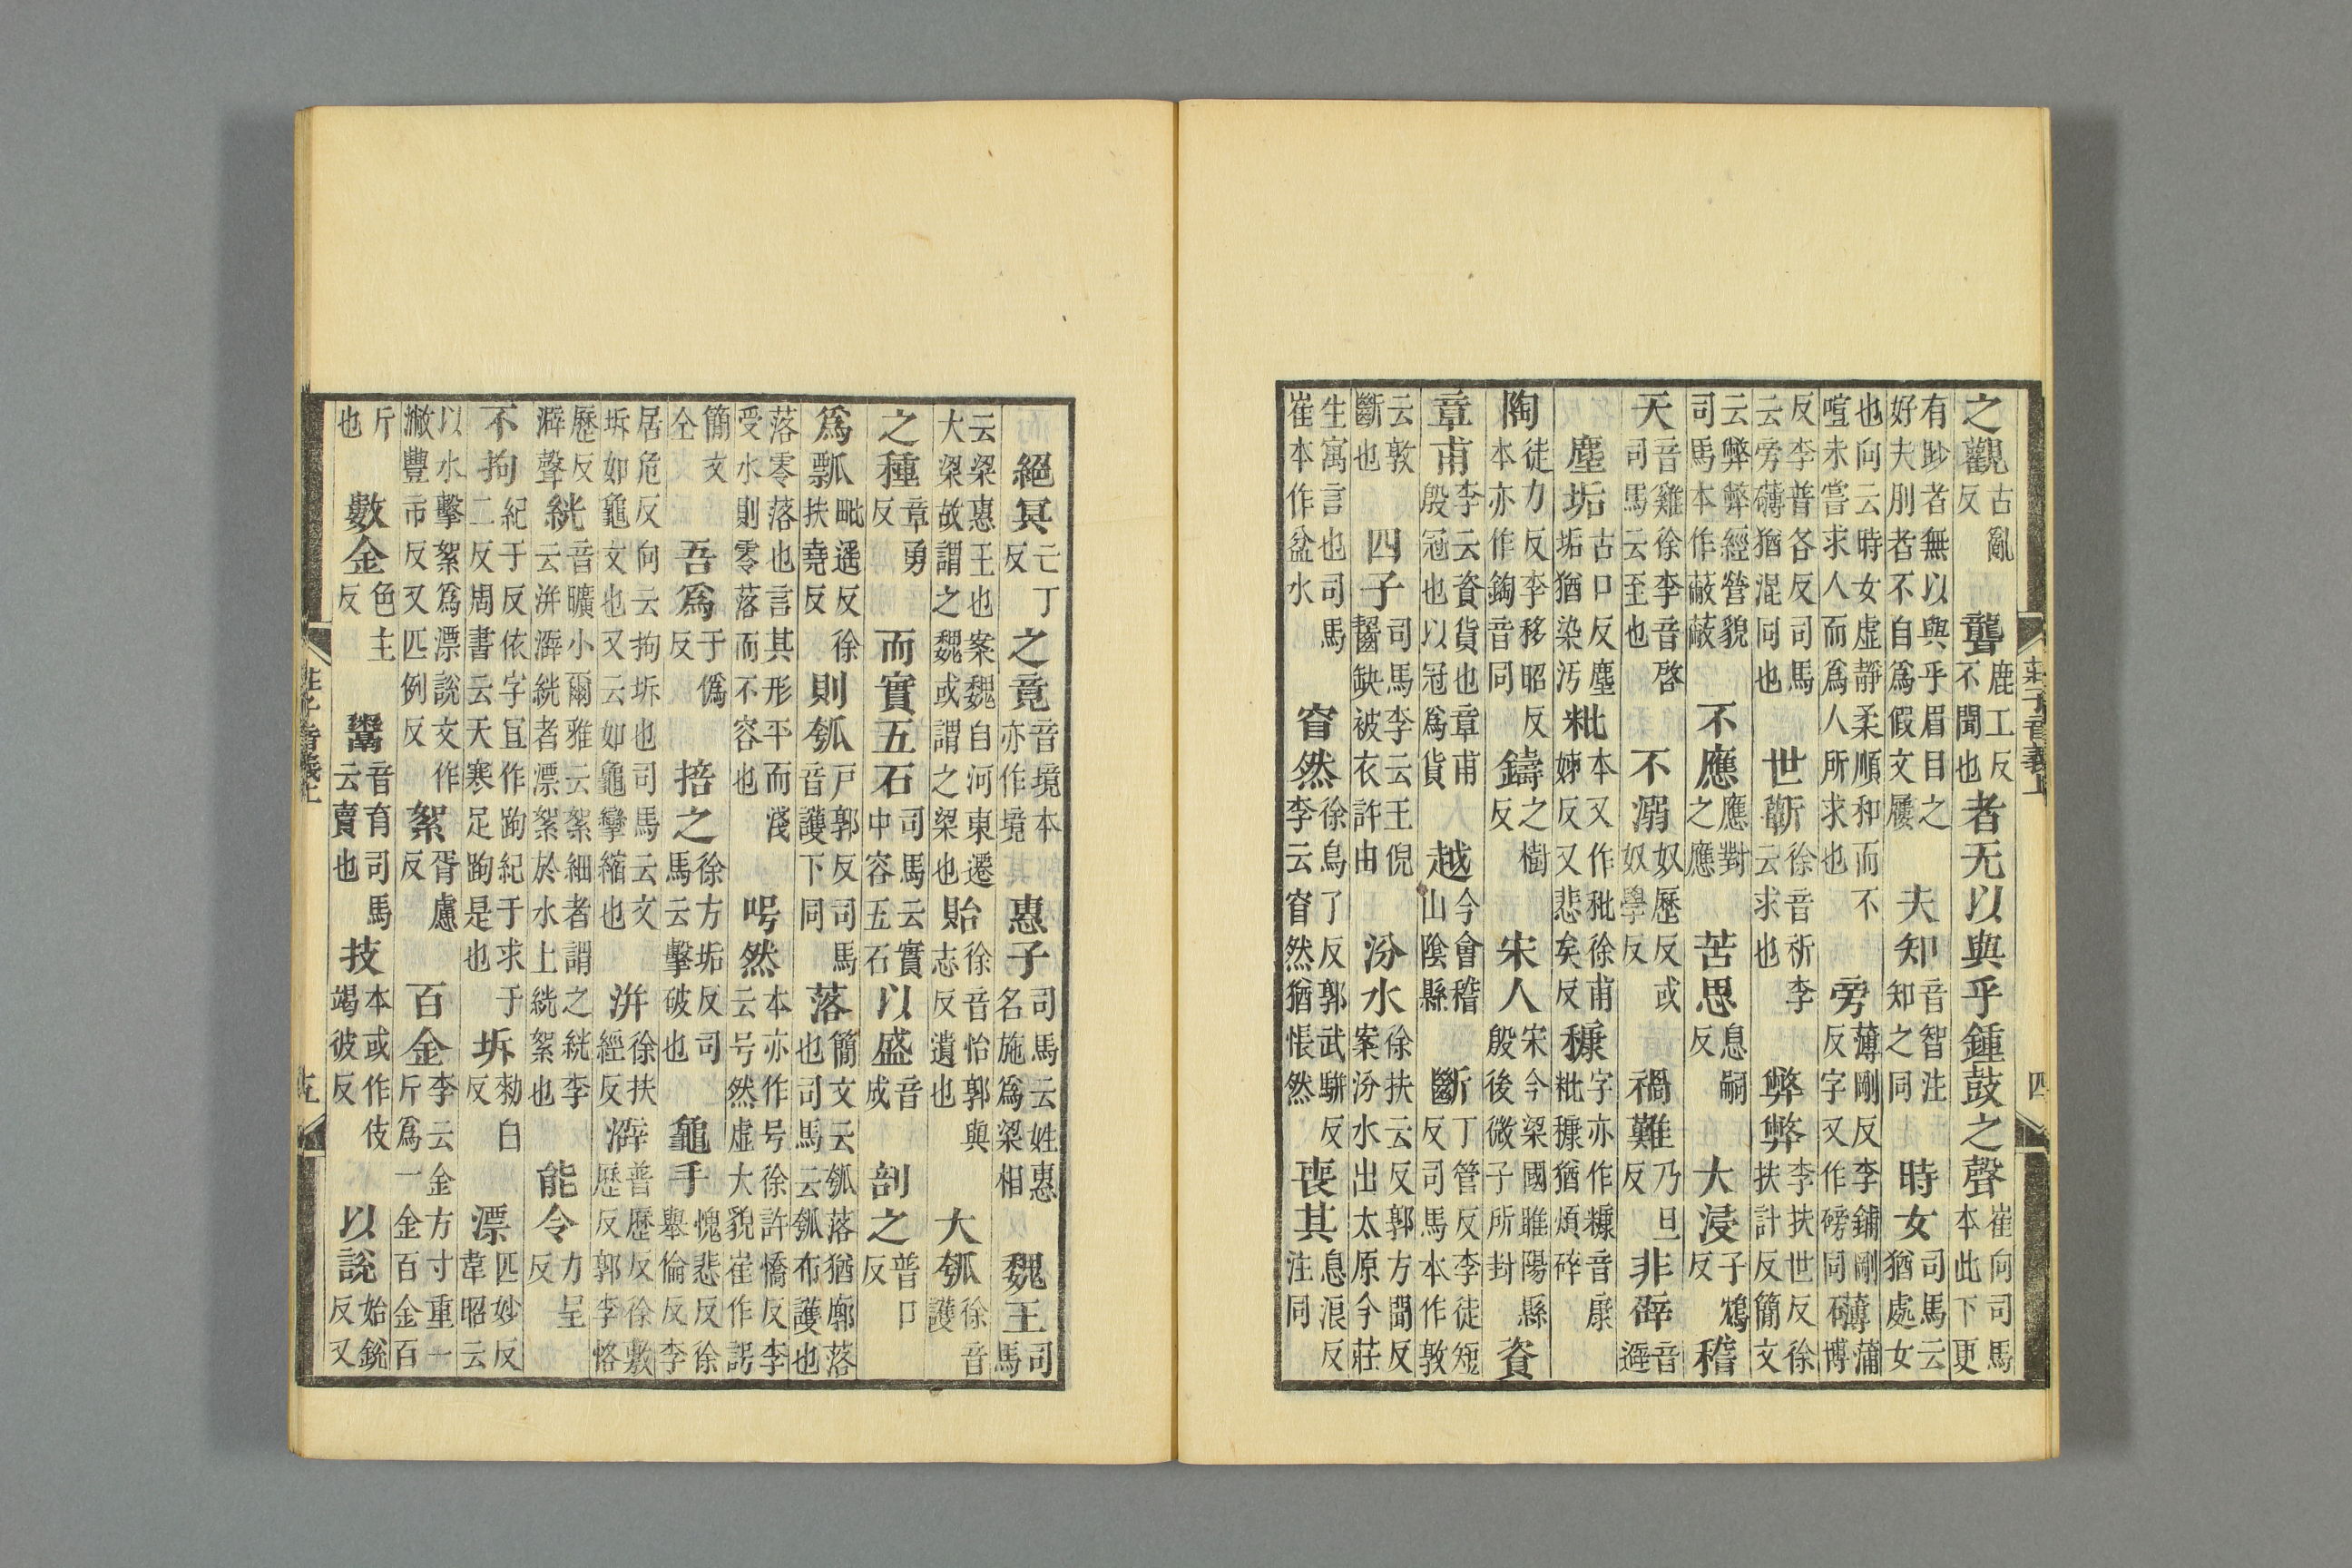 莊子音義上 四
之觀古亂反聾鹿工反不聞也者无以與乎鍾鼓之聲崔向司馬本此下更
有眇者無以與乎眉目之好夫刖者不自爲假文屨夫知音智注知之同時女司馬云猶處女
也向云時女虛靜柔順和而不喧未嘗求人而爲人所求也旁薄剛反李鋪剛反字又作磅同礴蒲博
反李普各反司馬云旁礴猶混同也世蘄徐音祈李云求也弊弊李扶世反徐扶計反簡文
云弊弊經營貌司馬本作蔽蔽不應應對之應苦思息嗣反大浸子鴆反稽
天音雞徐李音啓司馬云至也不溺奴歷反或奴學反禍難乃旦反非辟音避
塵垢古口反塵垢猶染污粃本又作秕徐甫姊反又悲矣反穅字亦作糠音康粃穅猶煩碎
陶徒刀反李移昭反本亦作鋾音同鑄之樹反宋人宋今梁國睢陽縣殷後微子所封資
章甫李云資貨也章甫殷冠也以冠爲貨越今會稽山陰縣斷丁管反李徒短反司馬本作敦
云敦斷也四子司馬李云王倪齧缺被衣許由汾水徐扶云反郭方聞反案汾水出太原今莊
生寓言也司馬崔本作盆水窅然徐烏了反郭武駢反李云窅然猶悵然喪其息浪反注同
絕冥亡丁反之竟音境本亦作境惠子司馬云姓惠名施爲梁相魏王司馬
云梁惠王也案魏自河東遷大梁故謂之魏或謂之梁也貽徐音怡郭與志反遺也大瓠徐音護
之種章勇反而實五石司馬云實中容五石以盛音成剖之普口反
爲瓢毗遥反徐扶堯反則瓠戶郭反司馬音護下同落簡文云瓠落猶廓落也司馬云瓠布護也
落零落也言其形平而淺受水則零落而不容也呺然本亦作号徐許憍反李云号然虛大貌崔作諤
簡文仝吾爲于僞反掊之徐方垢反司馬云擊破也龜手愧悲反徐舉倫反李
居危反向云拘坼也司馬云文坼如龜文也又云如龜攣縮也洴徐扶經反澼普歷反徐敷歷反郭李恪
歷反澼聲絖音曠小爾雅云絮細者謂之絖李云洴澼絖者漂絮於水上絖絮也能令力呈反
不拘紀于反依字宜作跔紀于求于二反周書云天寒足跔是也坼勑白反漂匹妙反韋昭云
以水擊絮爲漂說文作潎豐市反又匹例反絮胥慮反百金李云金方寸重一斤爲一金百金百
斤也數金色主反鬻音育司馬云賣也技本或作伎竭彼反以說始銳反又